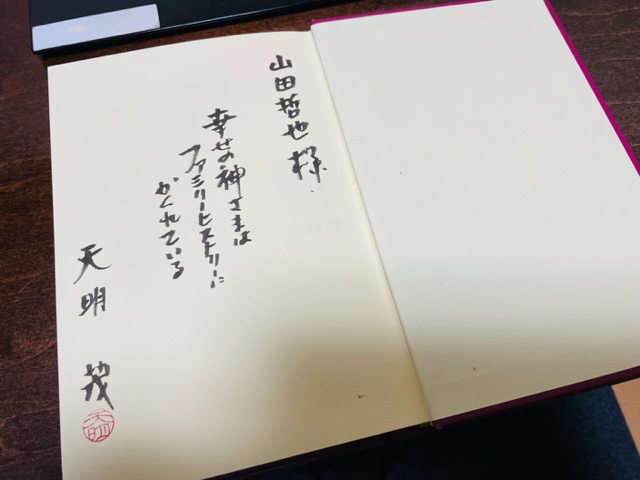 山田哲也様
幸せの神さまは
ファミリーヒストリーに
かくれている
天明 茂
天明